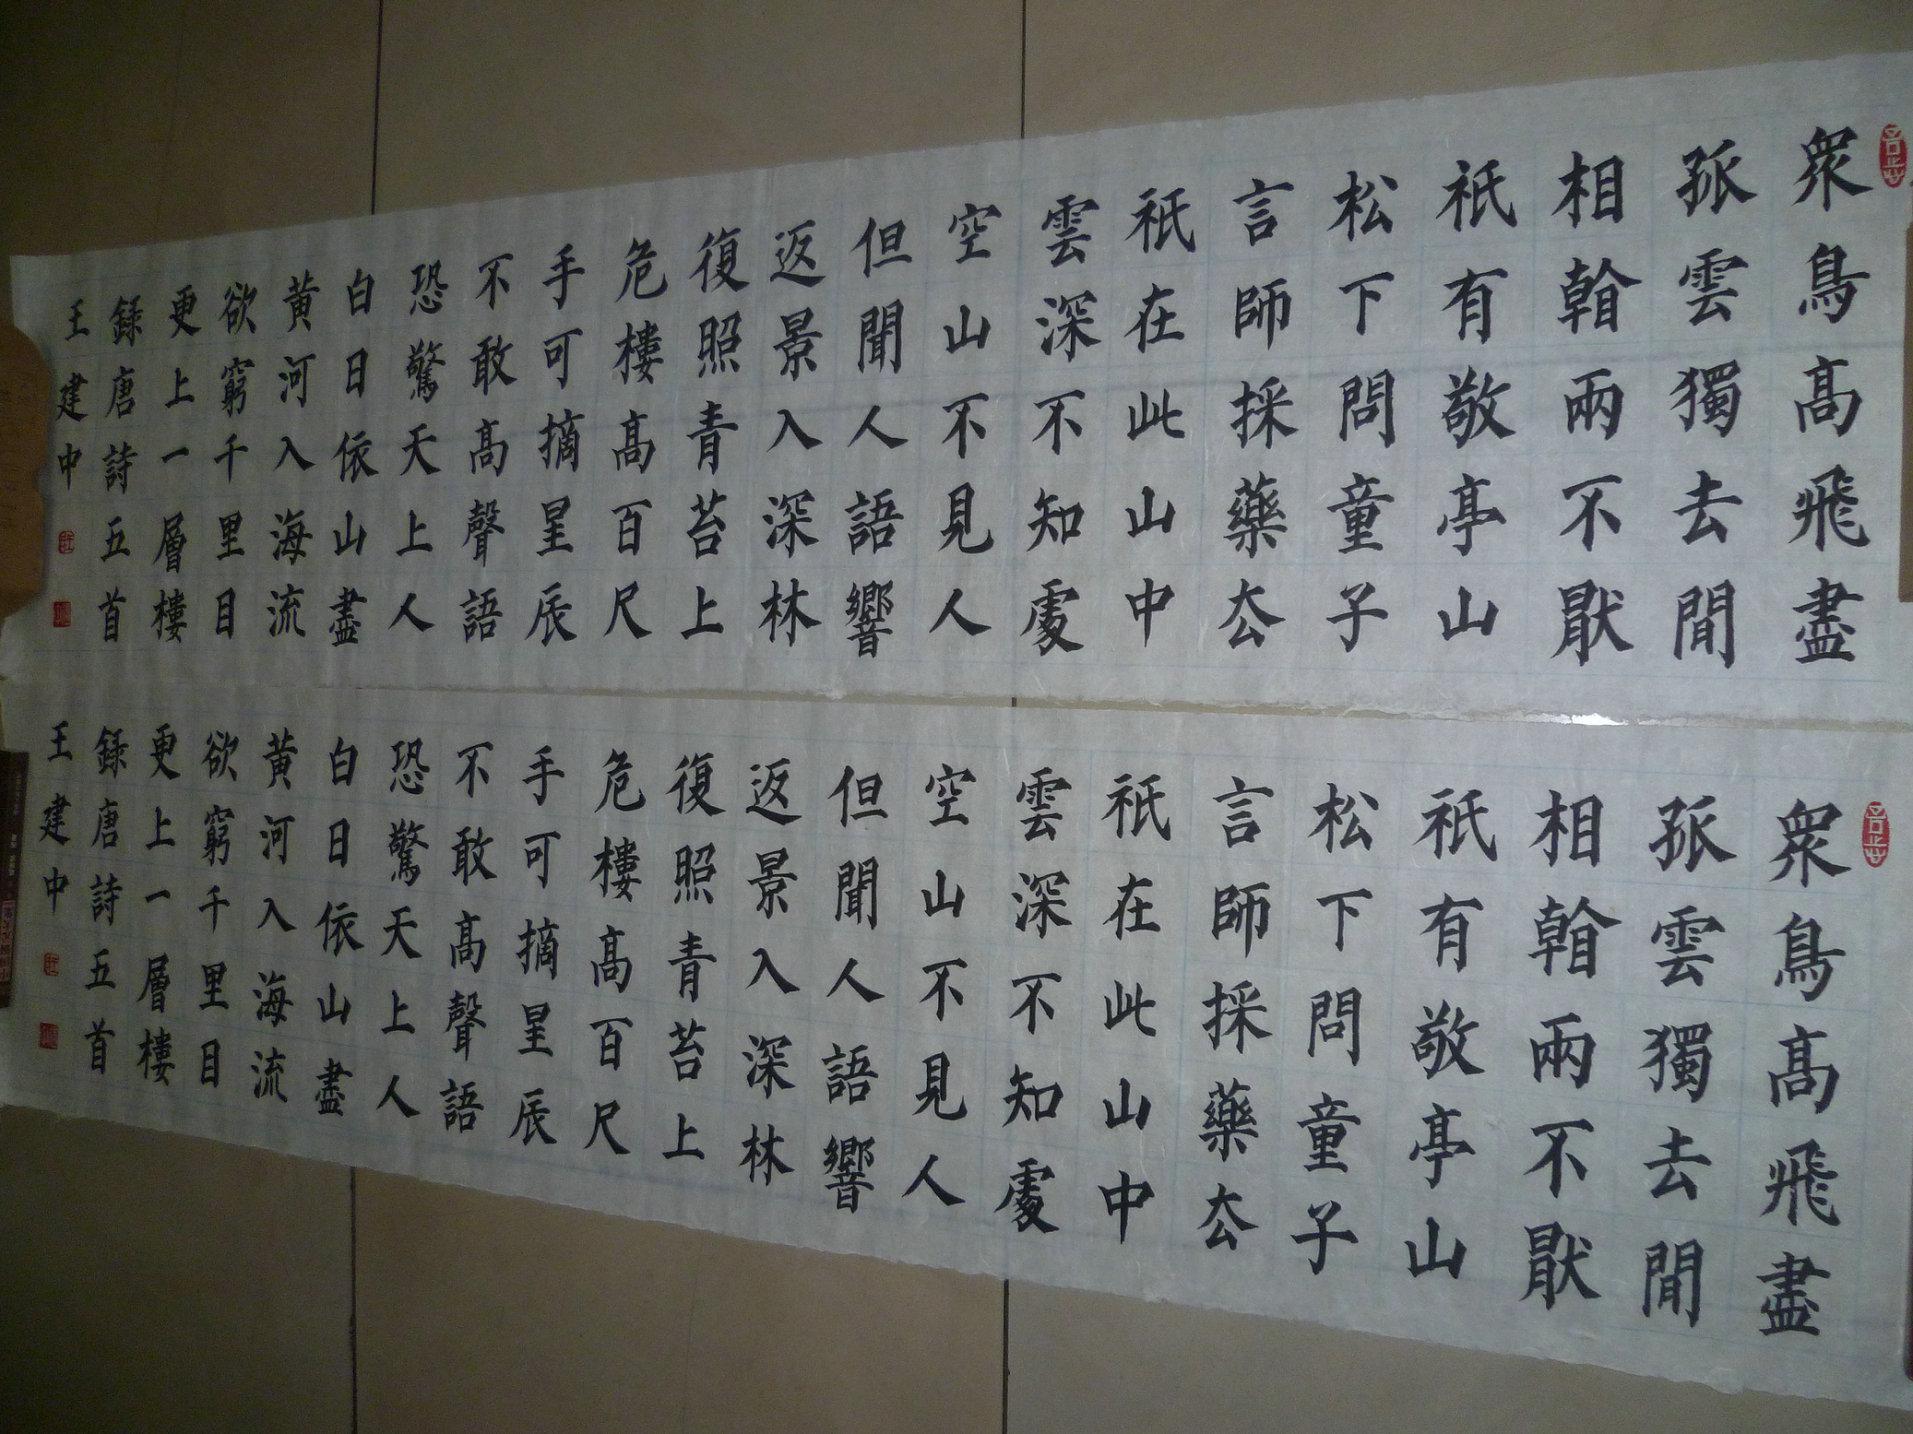 衆鳥髙飛盡
孤雲獨去閒
相看兩不猒
祇有敬亭山
松下問童子
言師採藥厺
祇在此山中
雲深不知處
空山不見人
但聞人語響
返景入深林
復照青苔上
危樓髙百尺
手可摘星辰
不敢髙聲語
恐驚天上人
白日依山盡
黃河入海流
欲窮千里目
更上一層樓
錄唐詩五首
王建中
衆鳥髙飛盡
孤雲獨去閒
相看兩不猒
祇有敬亭山
松下問童子
言師採藥厺
祇在此山中
雲深不知處
空山不見人
但聞人語響
返景入深林
復照青苔上
危樓髙百尺
手可摘星辰
不敢髙聲語
恐驚天上人
白日依山盡
黃河入海流
欲窮千里目
更上一層樓
錄唐詩五首
王建中